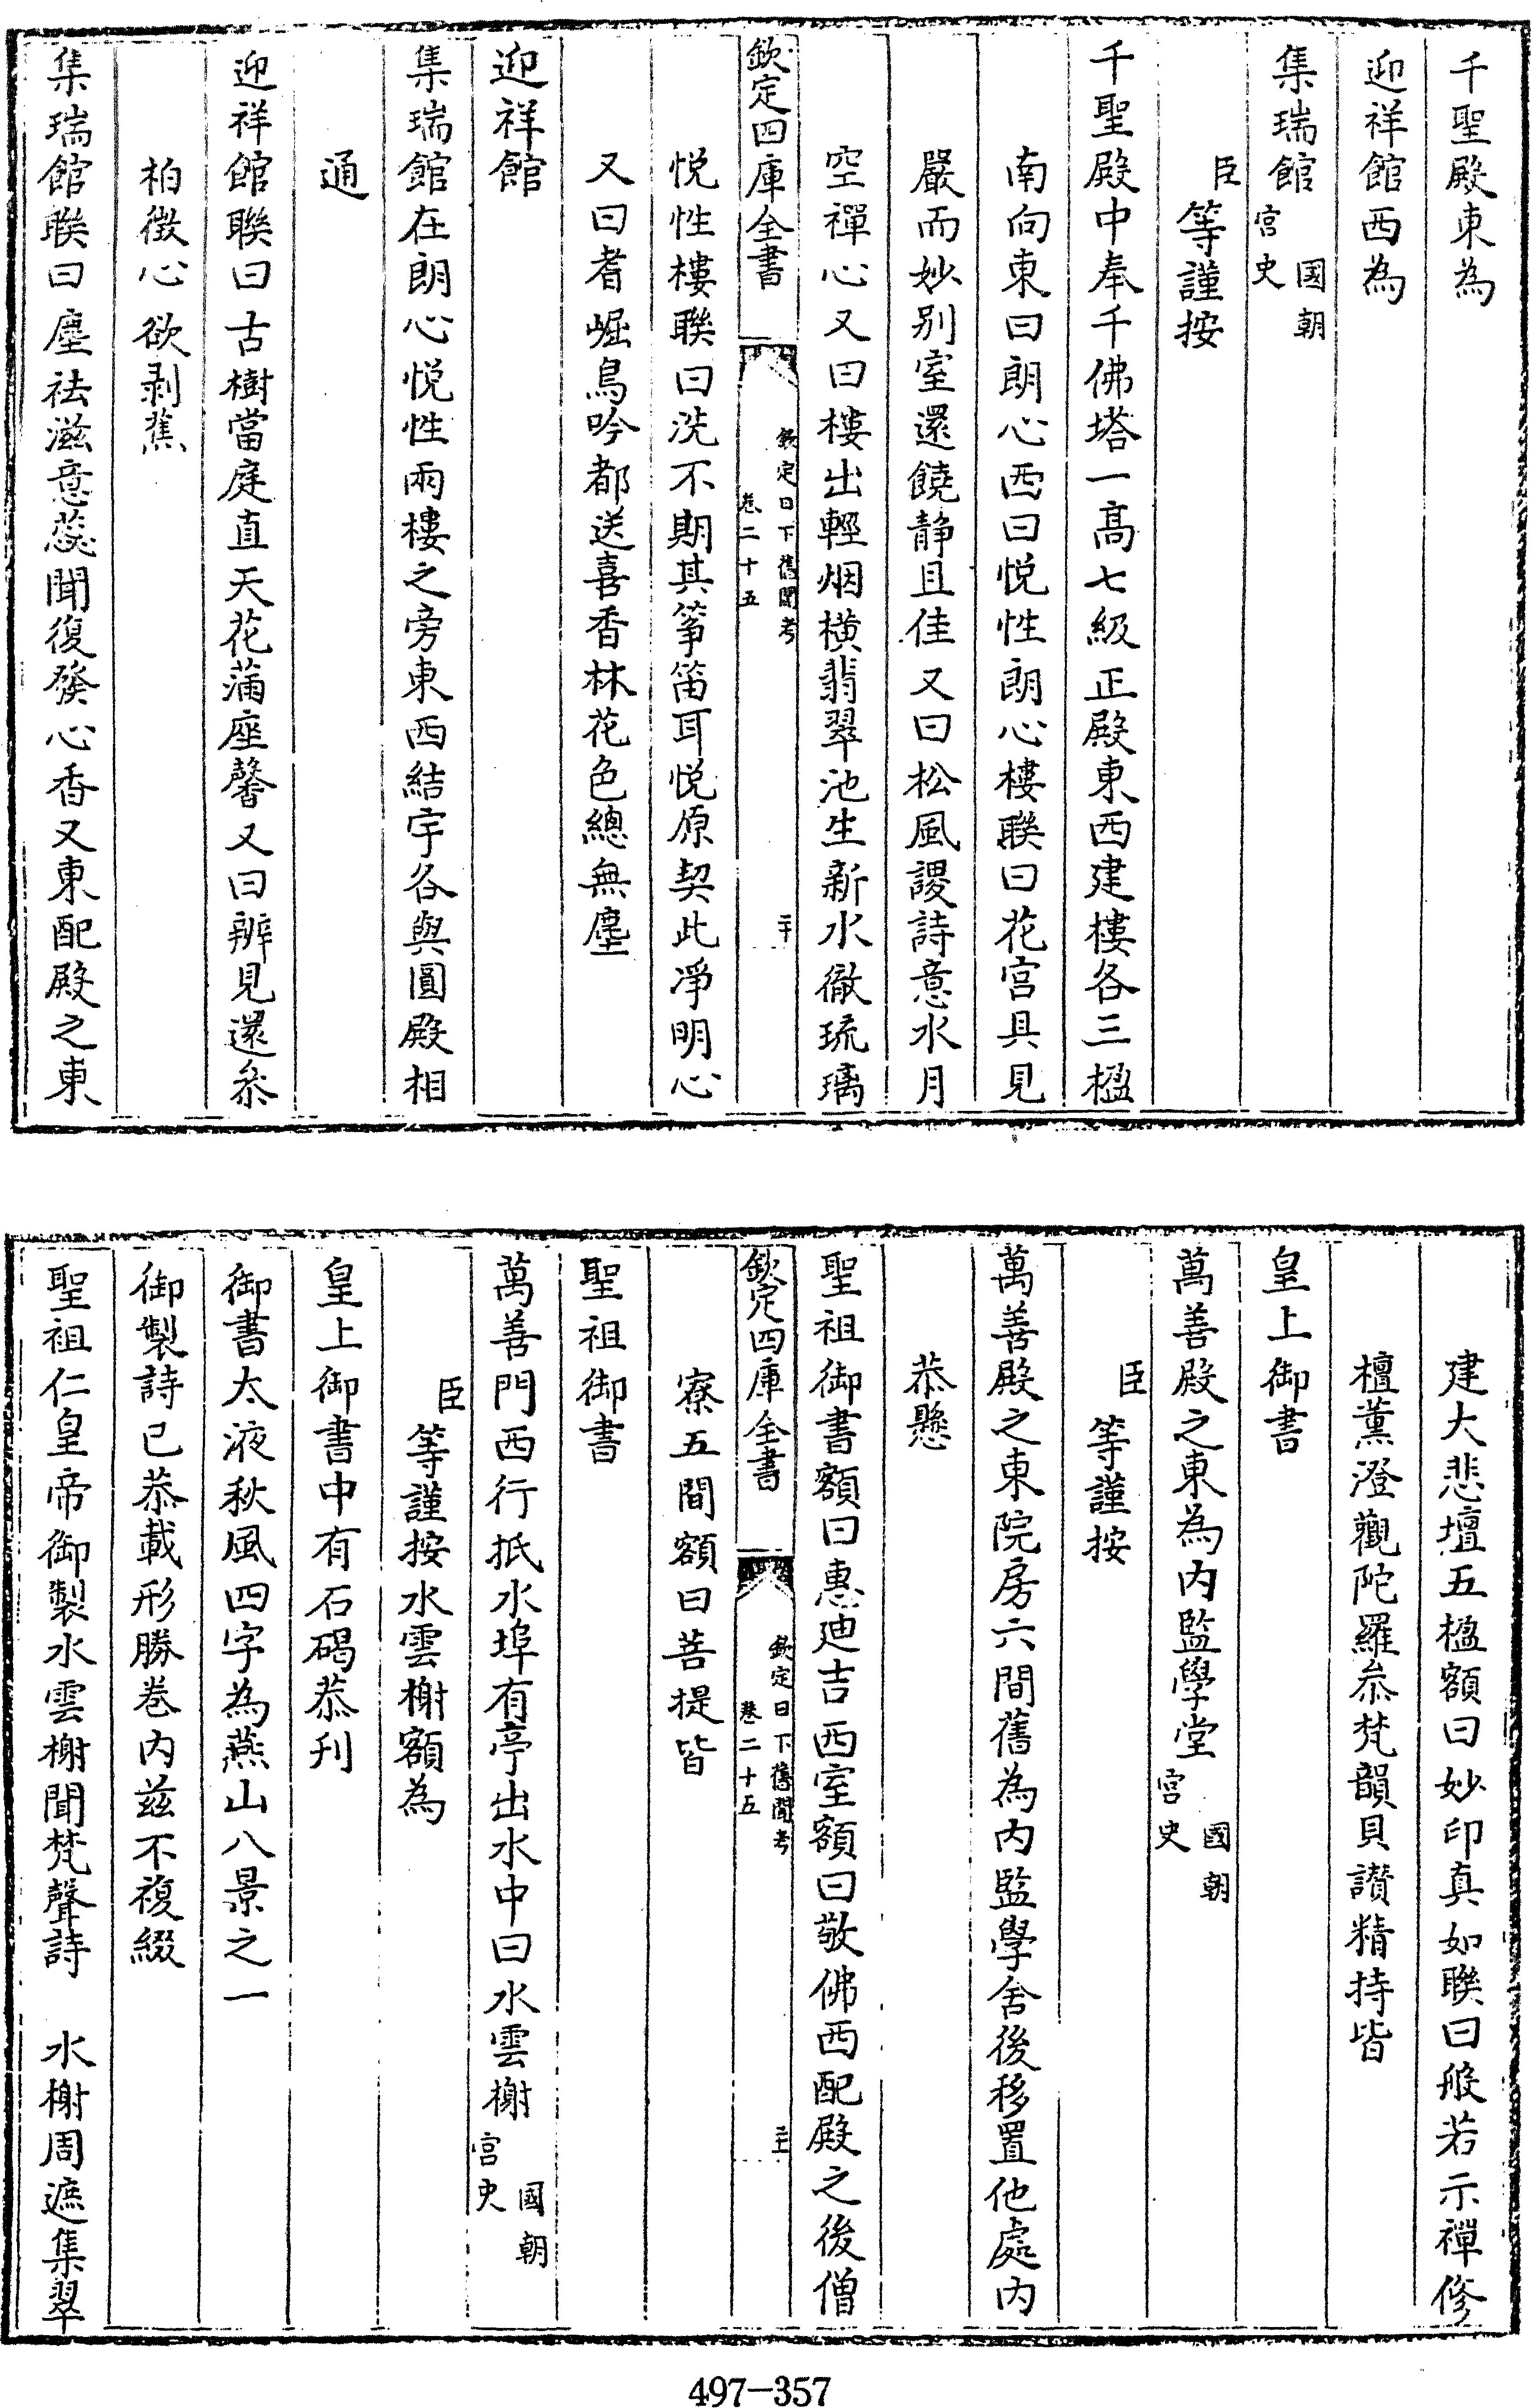 千聖殿東為
迎祥館西為
集瑞館國朝宫史
臣等謹按
千聖殿中奉千佛塔一高七級正殿東西建樓各三楹
南向東曰朗心西曰悦性朗心樓聯曰花宫具見
嚴而妙别室還饒静且佳又曰松風謖詩意水月
空禪心又曰樓出輕烟横翡翠池生新水徹琉璃
欽定四庫全書 欽定日下舊聞考 卷二十五 二十
悦性樓聯曰洗不期其筝笛耳悦原契此凈明心
又曰耆崛鳥吟都送喜香林花色總無塵
迎祥館
集瑞館在朗心悦性兩樓之旁東西結宇各與圓殿相
通
迎祥館聯曰古樹當庭直天花蒲座馨又曰辨見還叅
柏徴心欲剥蕉
集瑞館聯曰塵祛滋意蕊聞復發心香又東配殿之東
建大悲壇五楹額曰妙印真如聯曰般若示禪修
檀薰澄觀陀羅叅梵韻貝讚精持皆
皇上御書
萬善殿之東為内監學堂國朝宫史
臣等謹按
萬善殿之東院房六間舊為内監學舍後移置他處内
恭懸
聖祖御書額曰惠迪吉西室額曰敬佛西配殿之後僧
欽定四庫全書 欽定日下舊聞考 卷二十五 二十一
寮五間額曰菩提皆
聖祖御書
萬善門西行抵水埠有亭出水中曰水雲榭國朝宫史
臣等謹按水雲榭額為
皇上御書中有石碣恭刋
御書太液秋風四字為燕山八景之一
御製詩已恭載形勝卷内兹不複綴
聖祖仁皇帝御製水雲榭聞梵聲詩 水榭周遮集翠
497-357